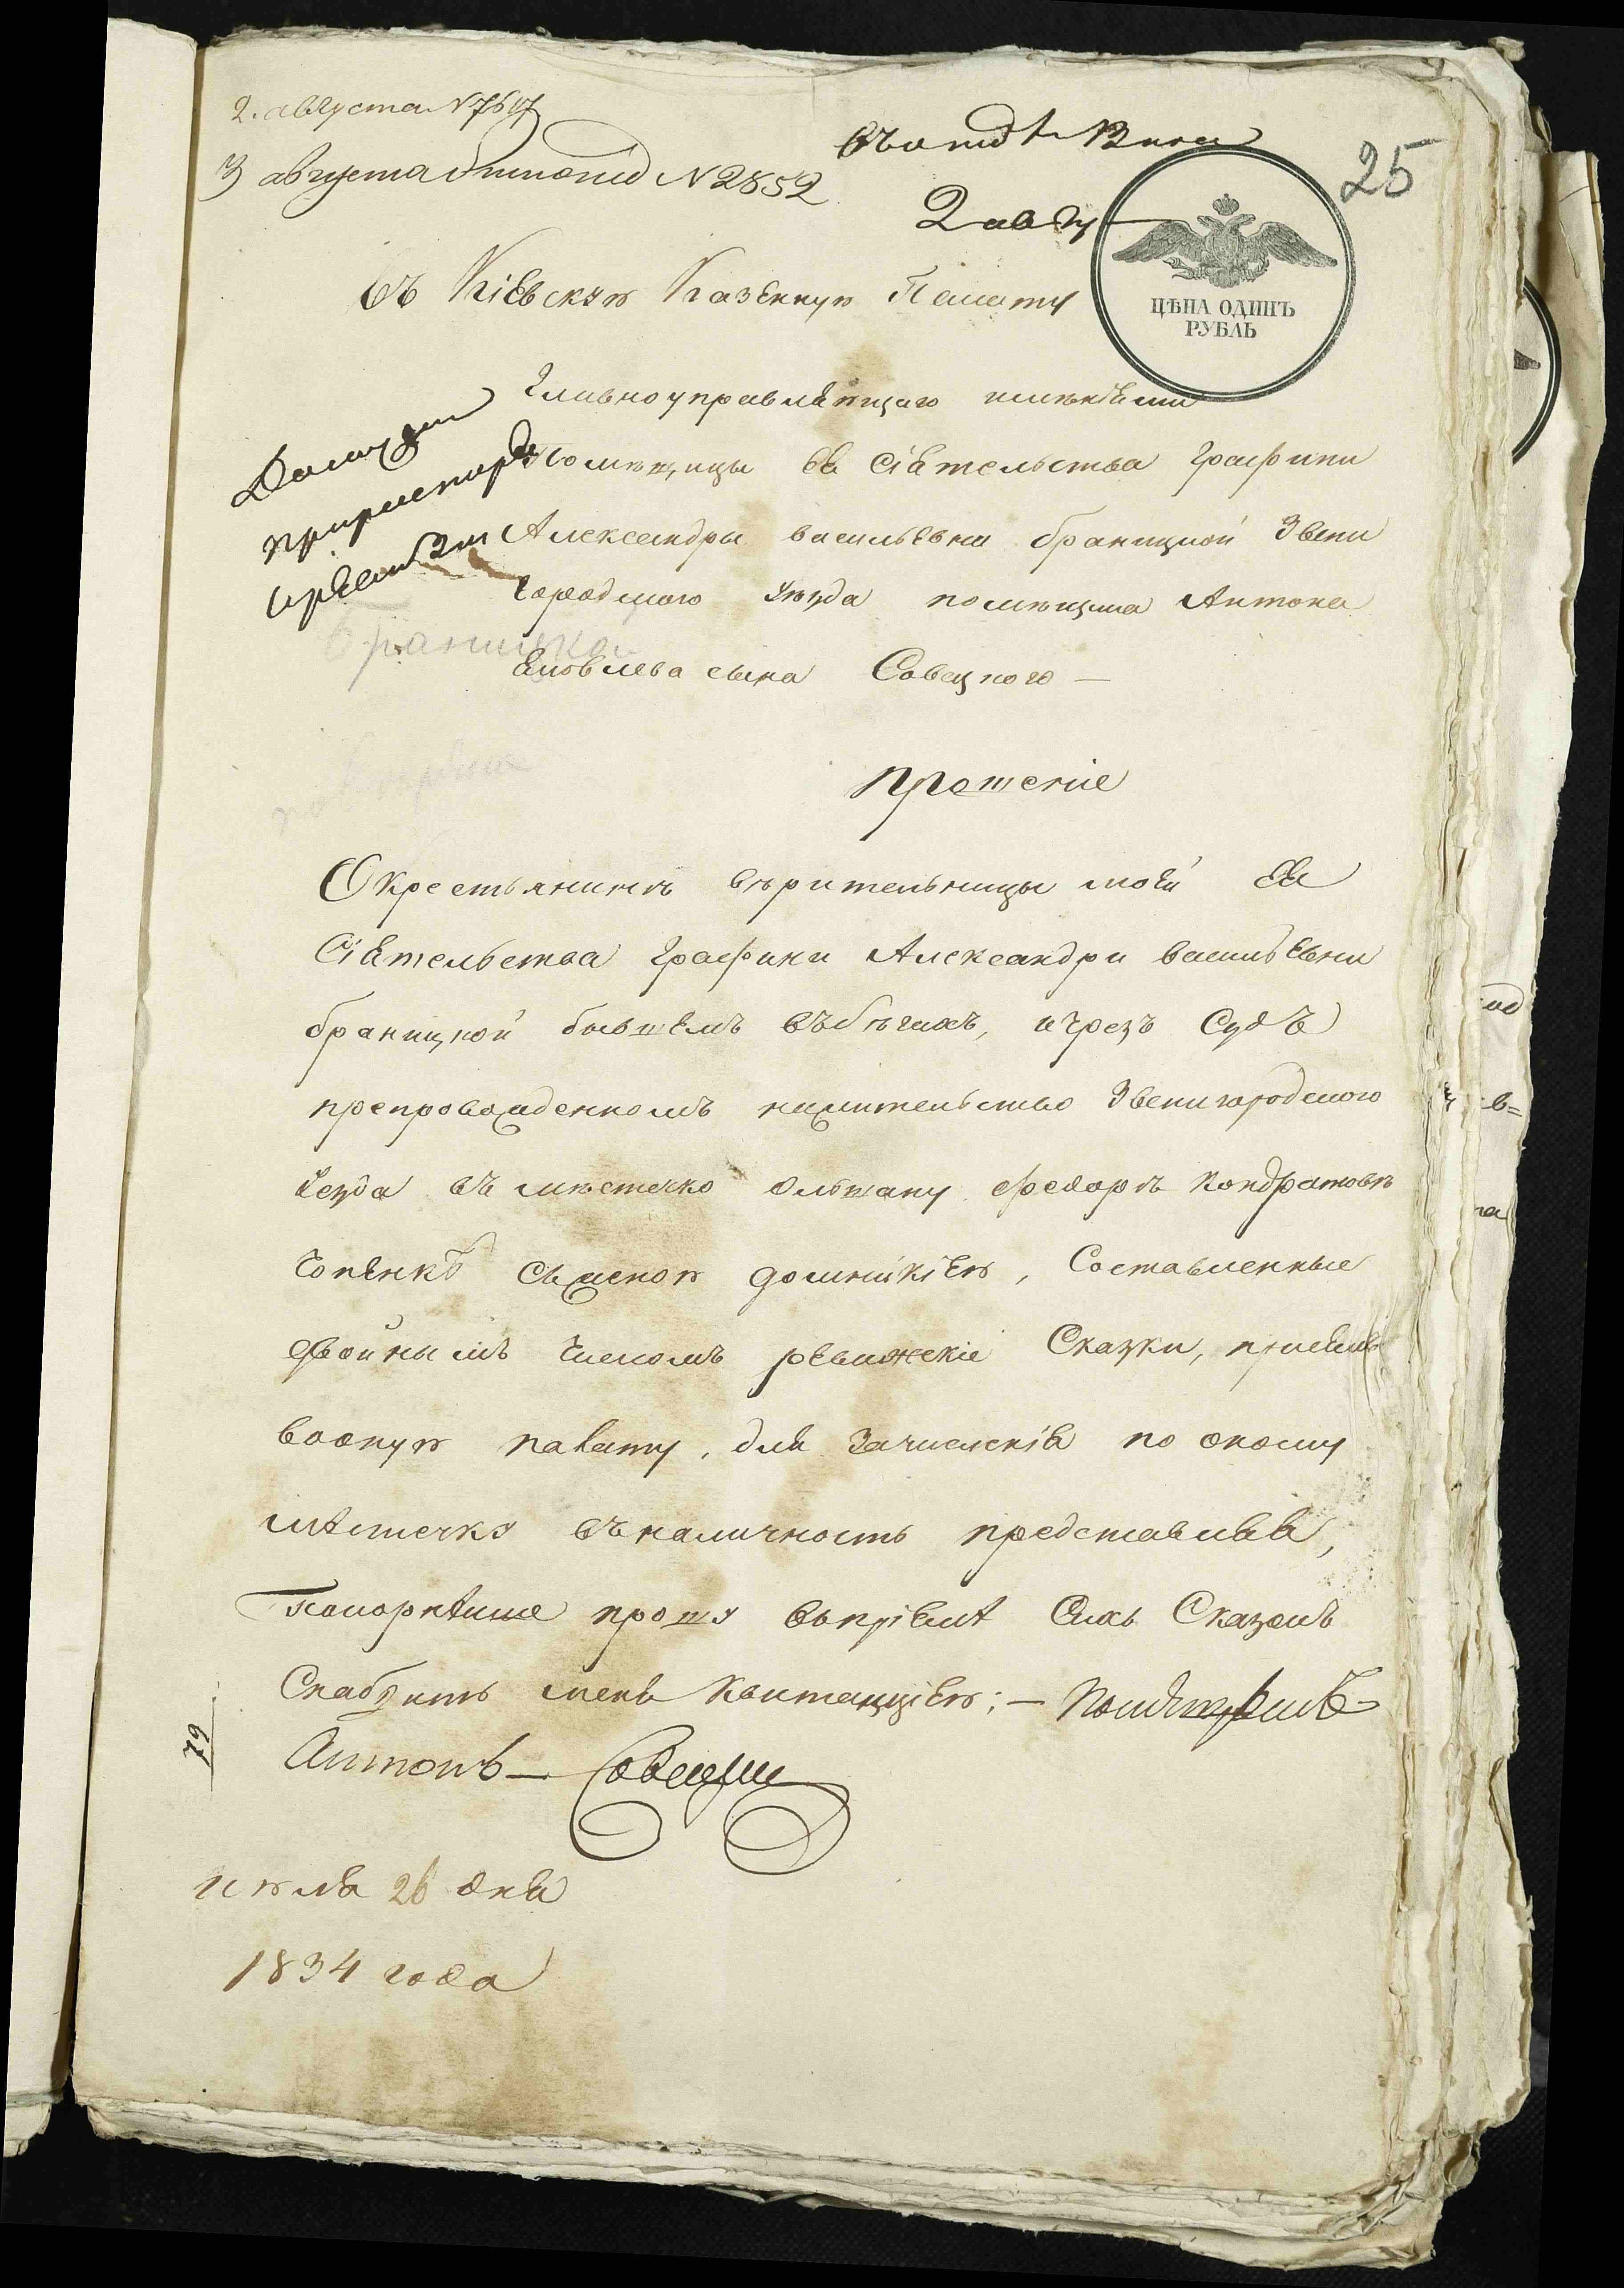 2. августа N 7617
3 августа N 2852
25
2 авгу
ЦѢНА ОДИНЪ
РУБЛЬ
Въ Кіевскую Казенную Палату
Главноуправляющаго имѣніями
помѣщицы ея Сіятельства Графини
Александры васильевны браницкой Звени
городского уѣзда помѣщика Антона
Яковлева сына Совецкого —
браницкой
прошеніе
О Крестьянинѣ вѣрительницы моей Ея
Сіятельства Графини Александри васильевни
браницкой бывшемъ въбѣгахъ, ичрезъ Судъ
препровожденномъ нажительство Звенигородского
уезда въ мѣстечко Ольшану Федорѣ Кондратовѣ
съженою , Составленные
двойнымъ числомъ ревижскіе Сказки,
воную палату, для Зачисленія по оному
мѣстечку въналичность представляя,
Покорнѣише прошу въпріемѣ Сихъ Сказокъ
Снабдить меня Квитанціею; —
Антонъ — Совецкий
79
июля 26 дня
1834 года